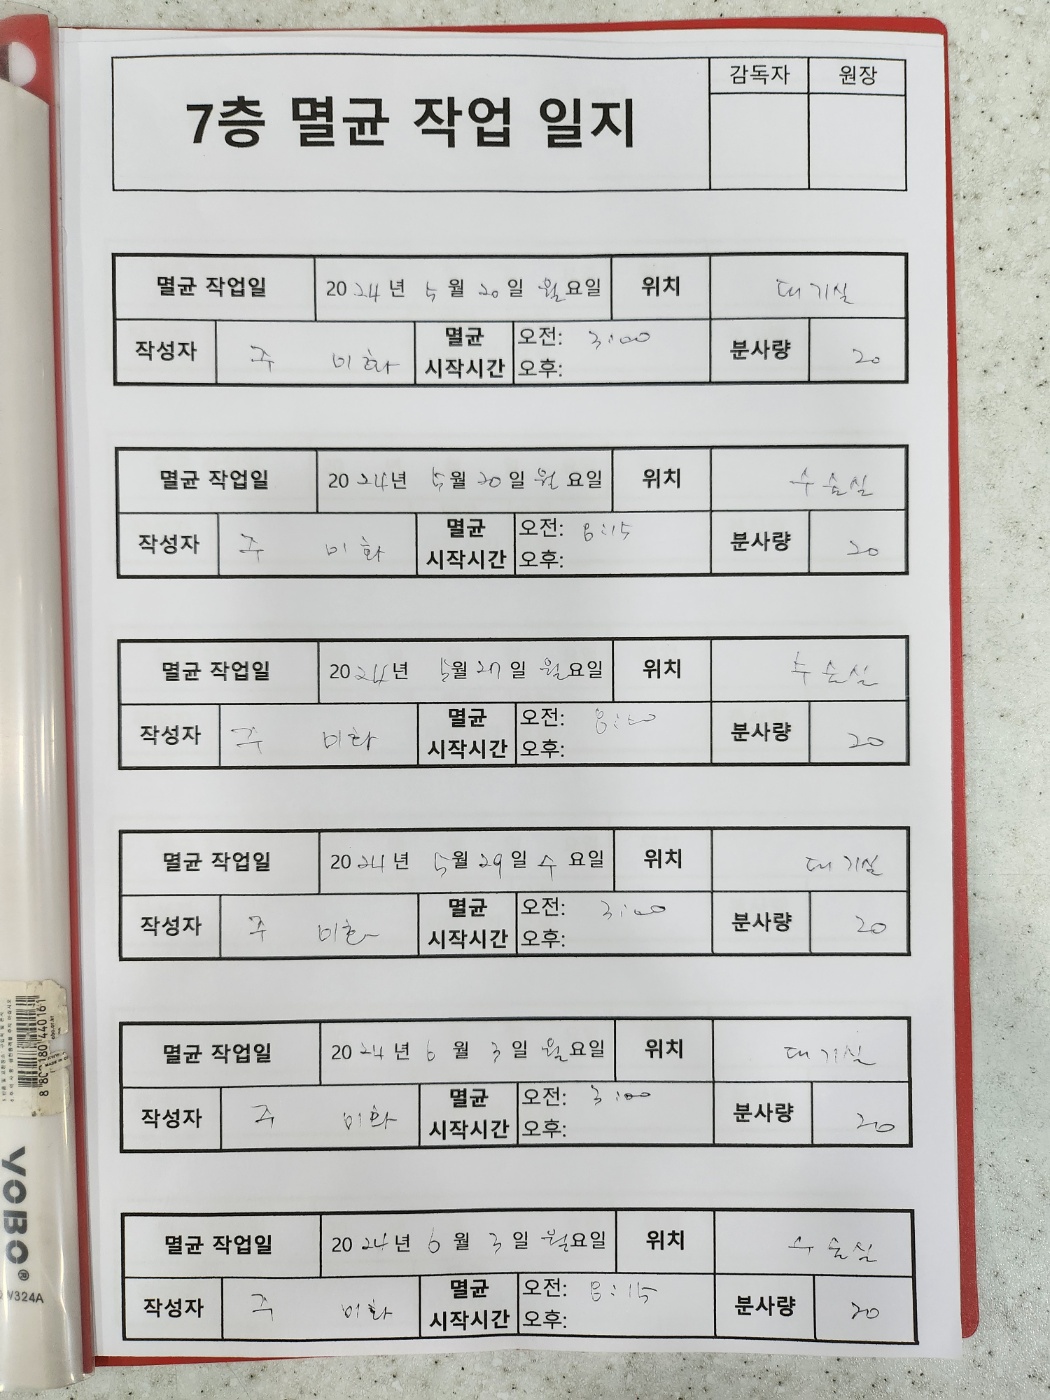 감독자 원장
7층 멸균 작업 일지
멸균 작업일 2024년 5월 20일 월요일 위치 대기실
작성자 주 미화 멸균 시작시간 오전: 3:00 오후: 분사량 20
멸균 작업일 2024년 5월 20일 월요일 위치 수술실
작성자 주 미화 멸균 시작시간 오전: 8:15 오후: 분사량 20
멸균 작업일 2024년 5월 27일 월요일 위치 수술실
작성자 주 미화 멸균 시작시간 오전: 오후: 분사량 20
멸균 작업일 2024년 5월 29일 수요일 위치 대기실
작성자 주 미화 멸균 시작시간 오전: 3:00 오후: 분사량 20
멸균 작업일 2024년 6월 3일 월요일 위치 대기실
작성자 주 미화 멸균 시작시간 오전: 3:00 오후: 분사량 20
멸균 작업일 2024년 6월 3일 월요일 위치 수술실
작성자 주 미화 멸균 시작시간 오전: 8:15 오후: 분사량 20
YOBO®